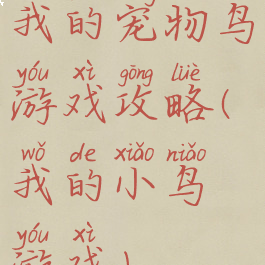 我的宠物鸟
yóu xì gōng lüè
游戏攻略(
wǒ de xiǎo niǎo
我的小鸟
yóu xì
游戏)